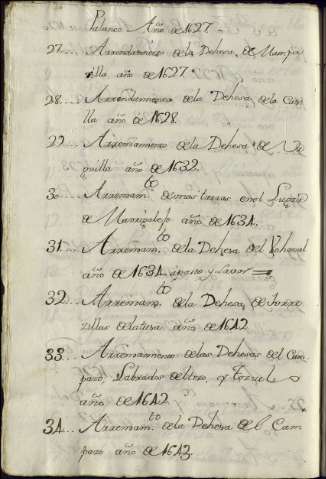 Palanco Año de 1627
27... Arrendamiento de la Dehesa de Manpa
rilla año de 1627.
28... Arrendamiento de la Dehesa de la Cas
lla año de 1628.
29... Arrendamiento de la Dehesa de
quilla año de 1632.
30... Arrendam.to de unas tierras en el Lugar
de año de 1634.
31... Arrendam.to de la Dehesa del
año de 1634 a pasto y Lavor
32... Arrendam.to de la Dehesa de Torre
cillas de la tiesa año de 1642
33... Arrendamiento de las Dehesas del Cam
pazo, Labrados y
año de 1642
34... Arrendam.to de la Dehesa del Cam
pazo año de 1643.